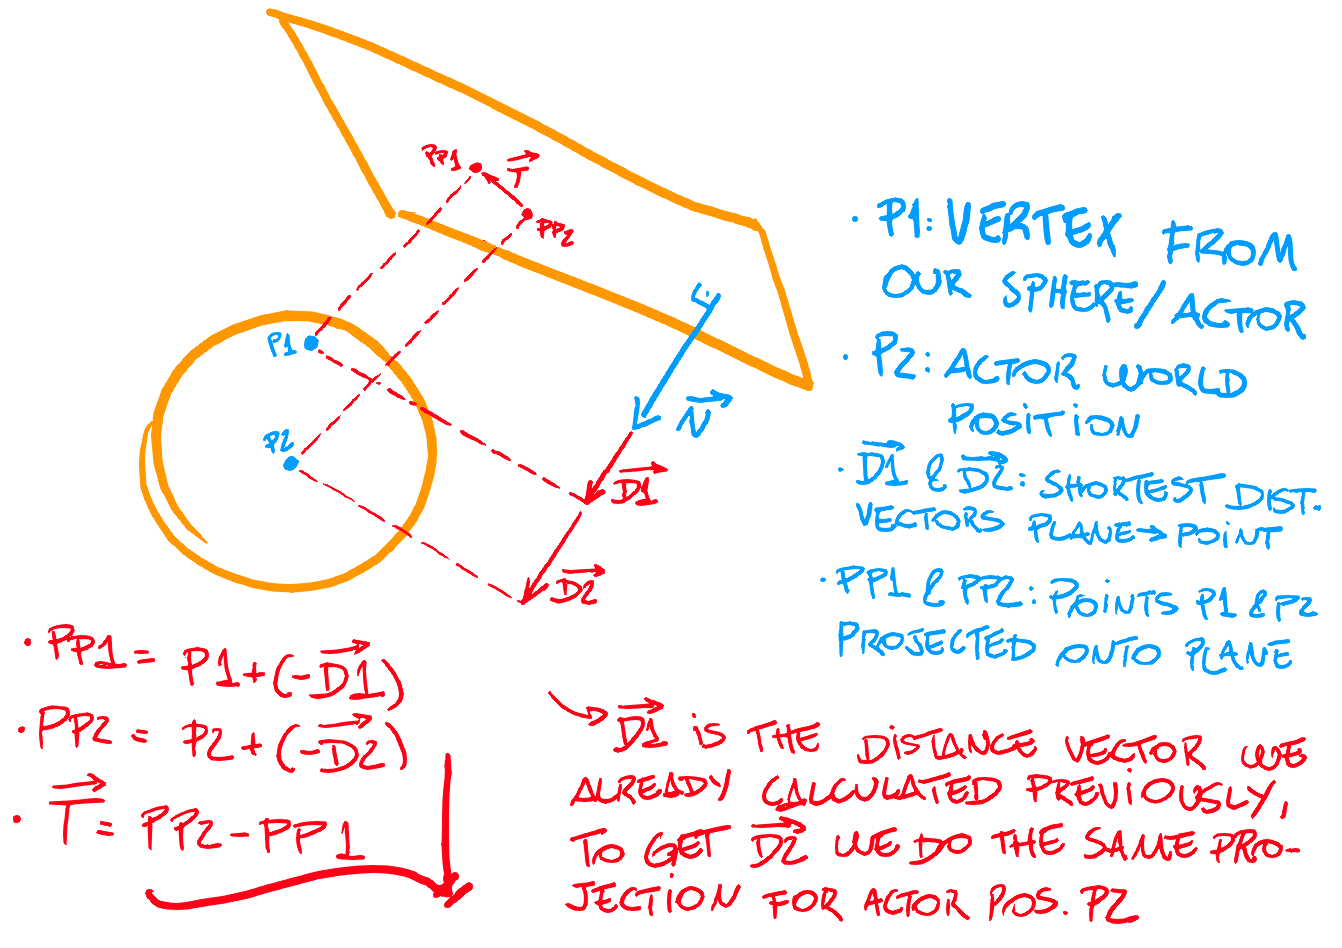 PP1
T
PP2
P1
P2
N
D1
D2
· P1: VERTEX FROM
OUR SPHERE/ACTOR
· P2: ACTOR WORLD
POSITION
· D1 & D2: SHORTEST DIST.
VECTORS PLANE→POINT
· PP1 & PP2: POINTS P1 & P2
PROJECTED ONTO PLANE
· PP1 = P1+(-D1)
· PP2 = P2+(-D2)
· T = PP2-PP1
D1 IS THE DISTANCE VECTOR WE
ALREADY CALCULATED PREVIOUSLY,
TO GET D2 WE DO THE SAME PRO-
JECTION FOR ACTOR POS. P2